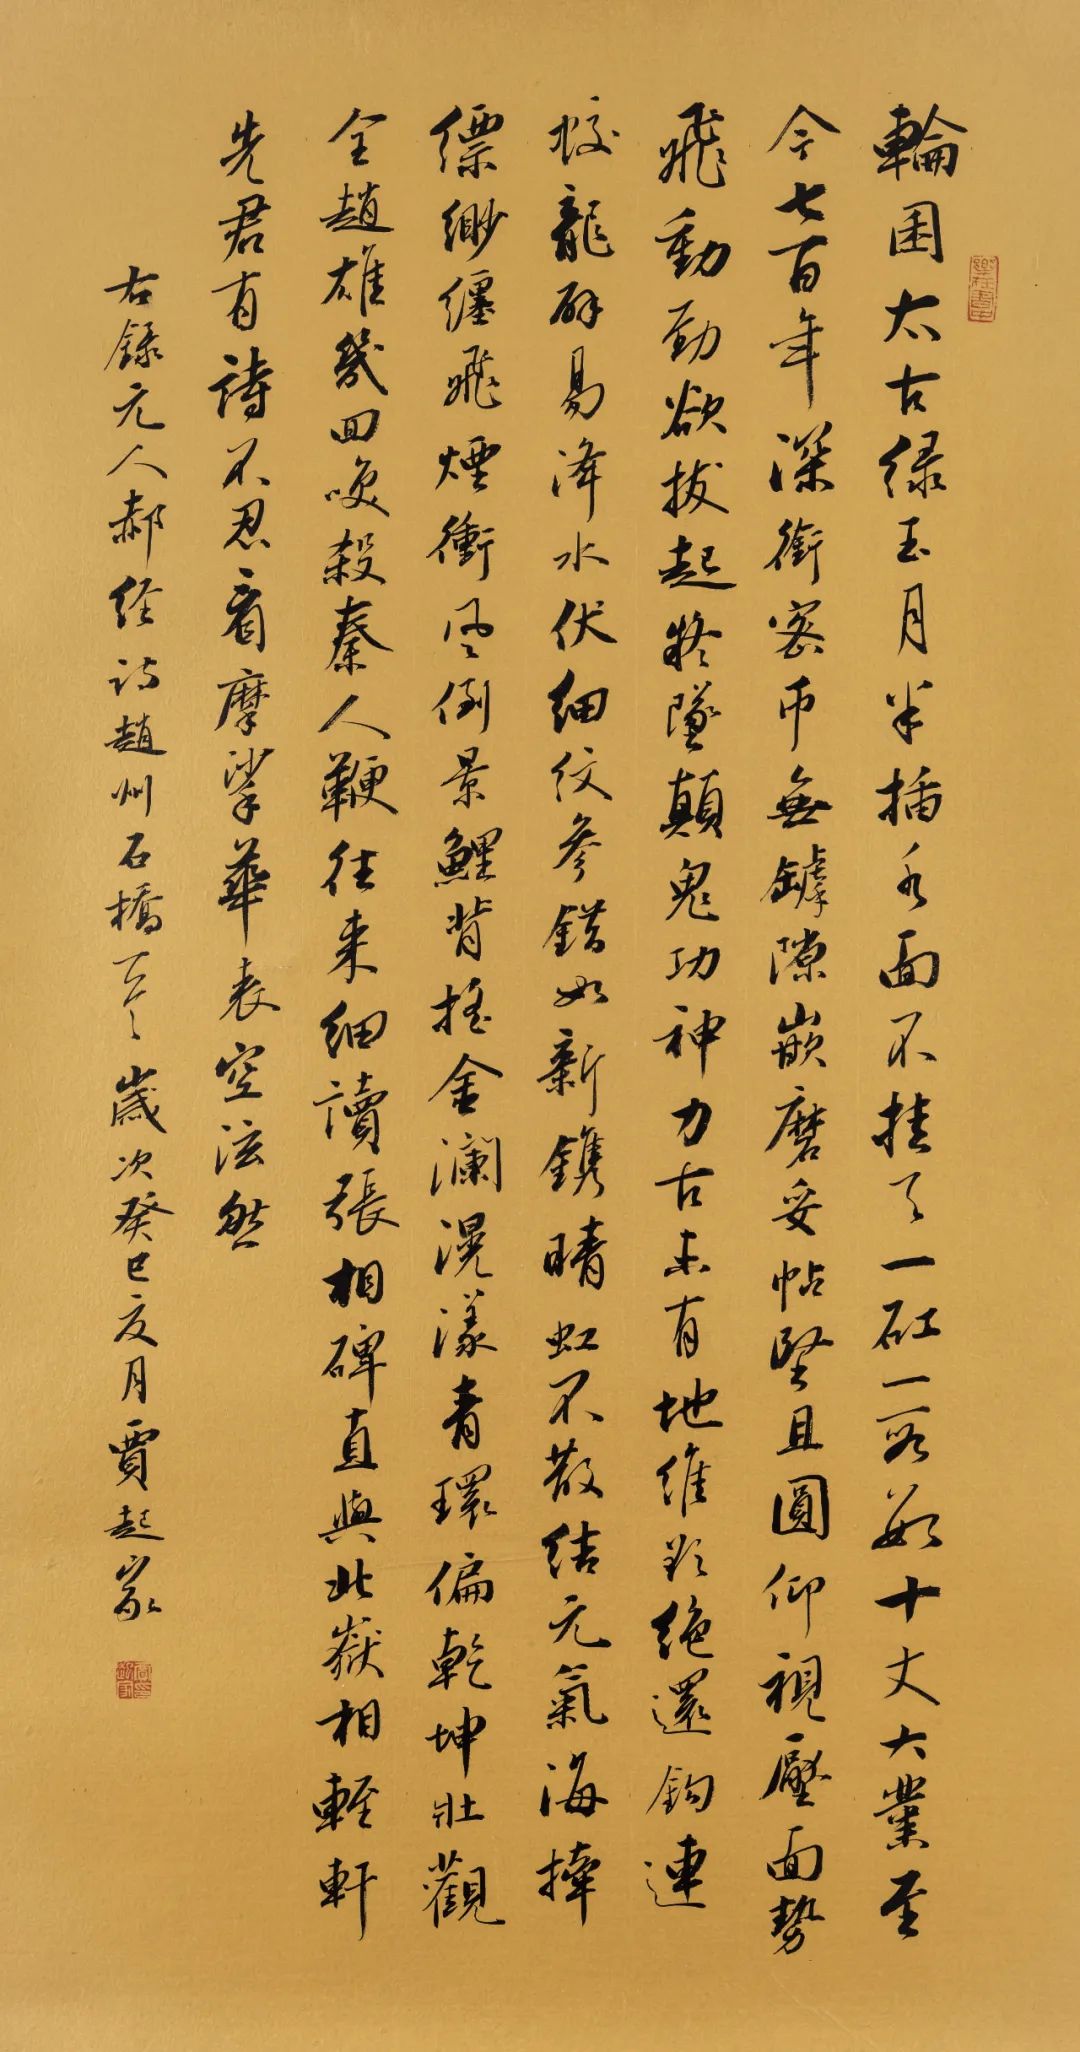 輪囷太古绿玉月半插水面不掛天一矼一跨数十丈大業至
今七百年深銜密币無罅隙嵌磨妥帖堅且圓仰視壓面勢
飛動勁欲拔起將墜顛鬼功神力古未有地維欲絶還鈎連
蛟龍辟易洚水伏细纹參錯如新鐫晴虹不散结元氣海擡
縹緲纏飛煙衝風倒景鯉背摇金瀾滉漾青環偏乾坤壯觀
全趙雄幾回喚殺秦人鞭往来细讀張相碑直與此嶽相軽軒
先君有詩不忍看摩挲華表空泫然
右録元人郝经诗趙州石橋一首 歲次癸巳夏月賈起家